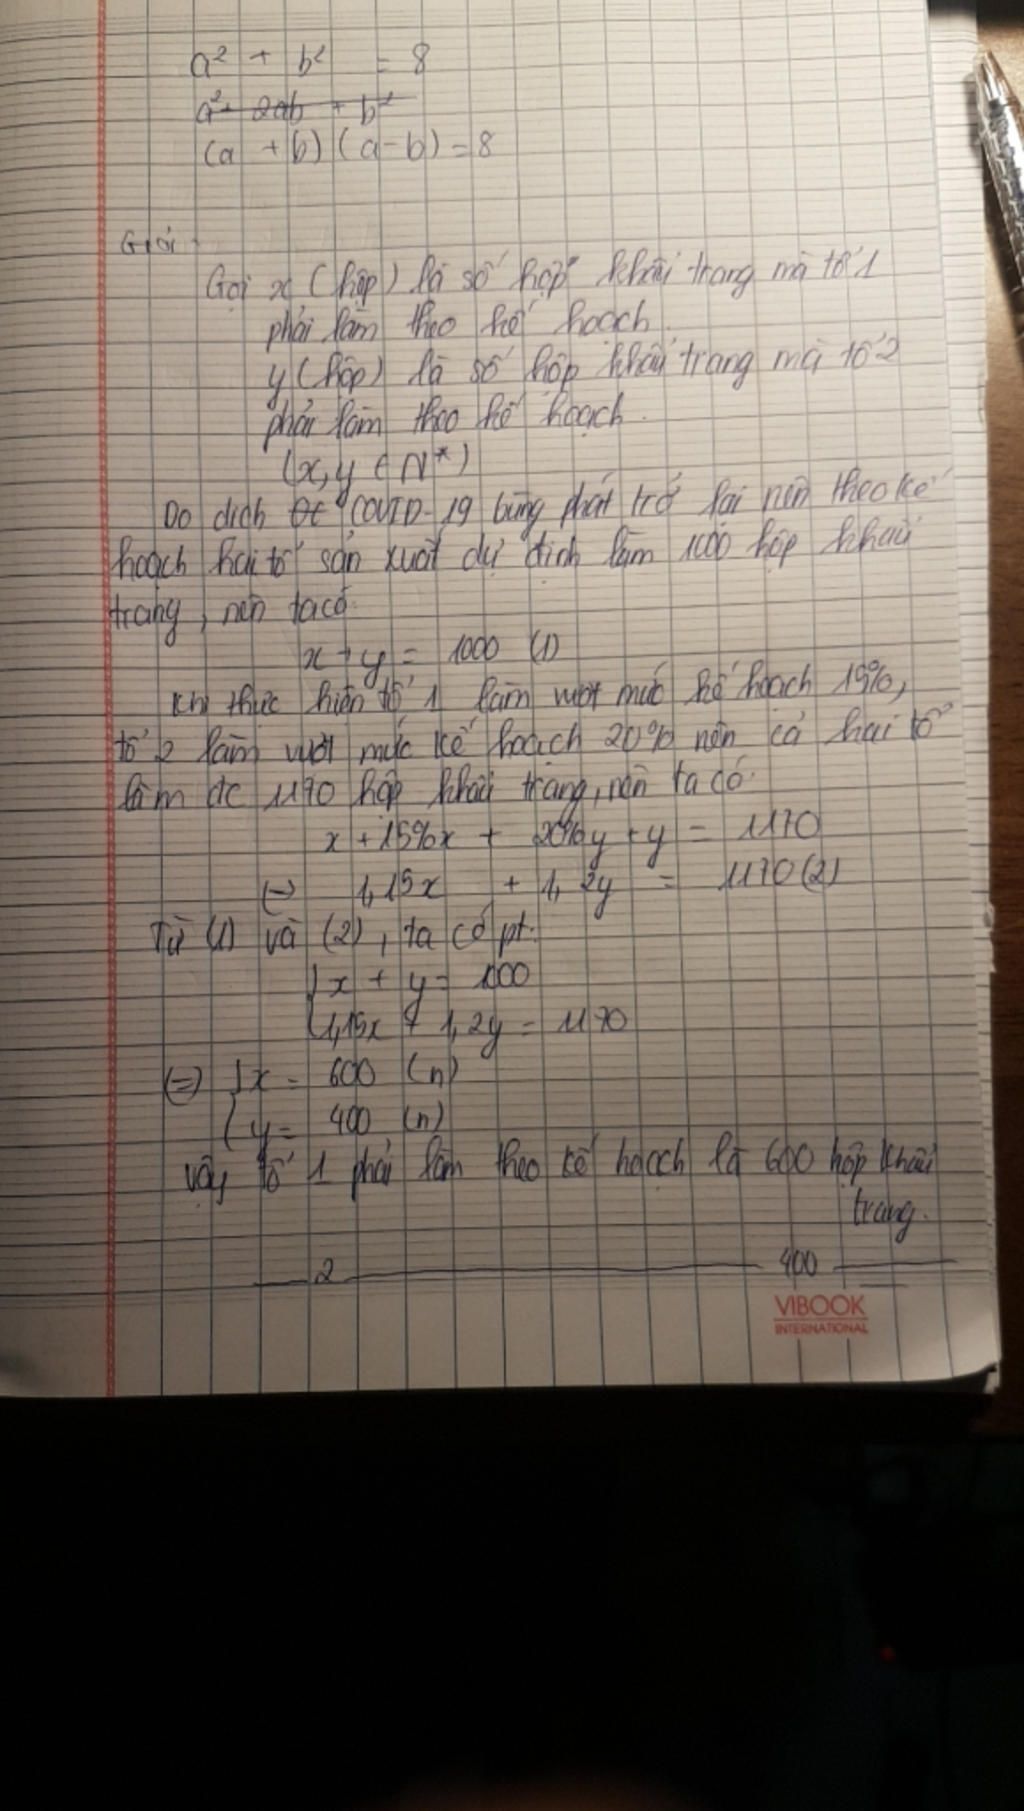 a² + b² = 8
a² - 2ab + b²
(a + b) (a - b) = 8
Giải
Gọi x (hộp) là số hộp khẩu trang mà tổ 1
phải làm theo kế hoạch.
y (hộp) là số hộp khẩu trang mà tổ 2
phải làm theo kế hoạch.
(x, y ∈ N*)
Do dịch COVID-19 bùng phát trở lại nên theo kế
hoạch hai tổ sản xuất dự định làm 1000 hộp khẩu
trang, nên ta có:
x + y = 1000 (1)
Khi thực hiện tổ 1 làm vượt mức kế hoạch 15%,
tổ 2 làm vượt mức kế hoạch 20% nên cả hai tổ
làm đc 1170 hộp khẩu trang, nên ta có:
x + 15%x + 20%y + y = 1170
(=) 1,15x + 1,2y = 1170 (2)
Từ (1) và (2), ta có pt:
{ x + y = 1000
{ 1,15x + 1,2y = 1170
(=) { x = 600 (n)
{ y = 400 (n)
Vậy tổ 1 phải làm theo kế hoạch là 600 hộp khẩu
trang.
2 400
VIBOOK
INTERNATIONAL